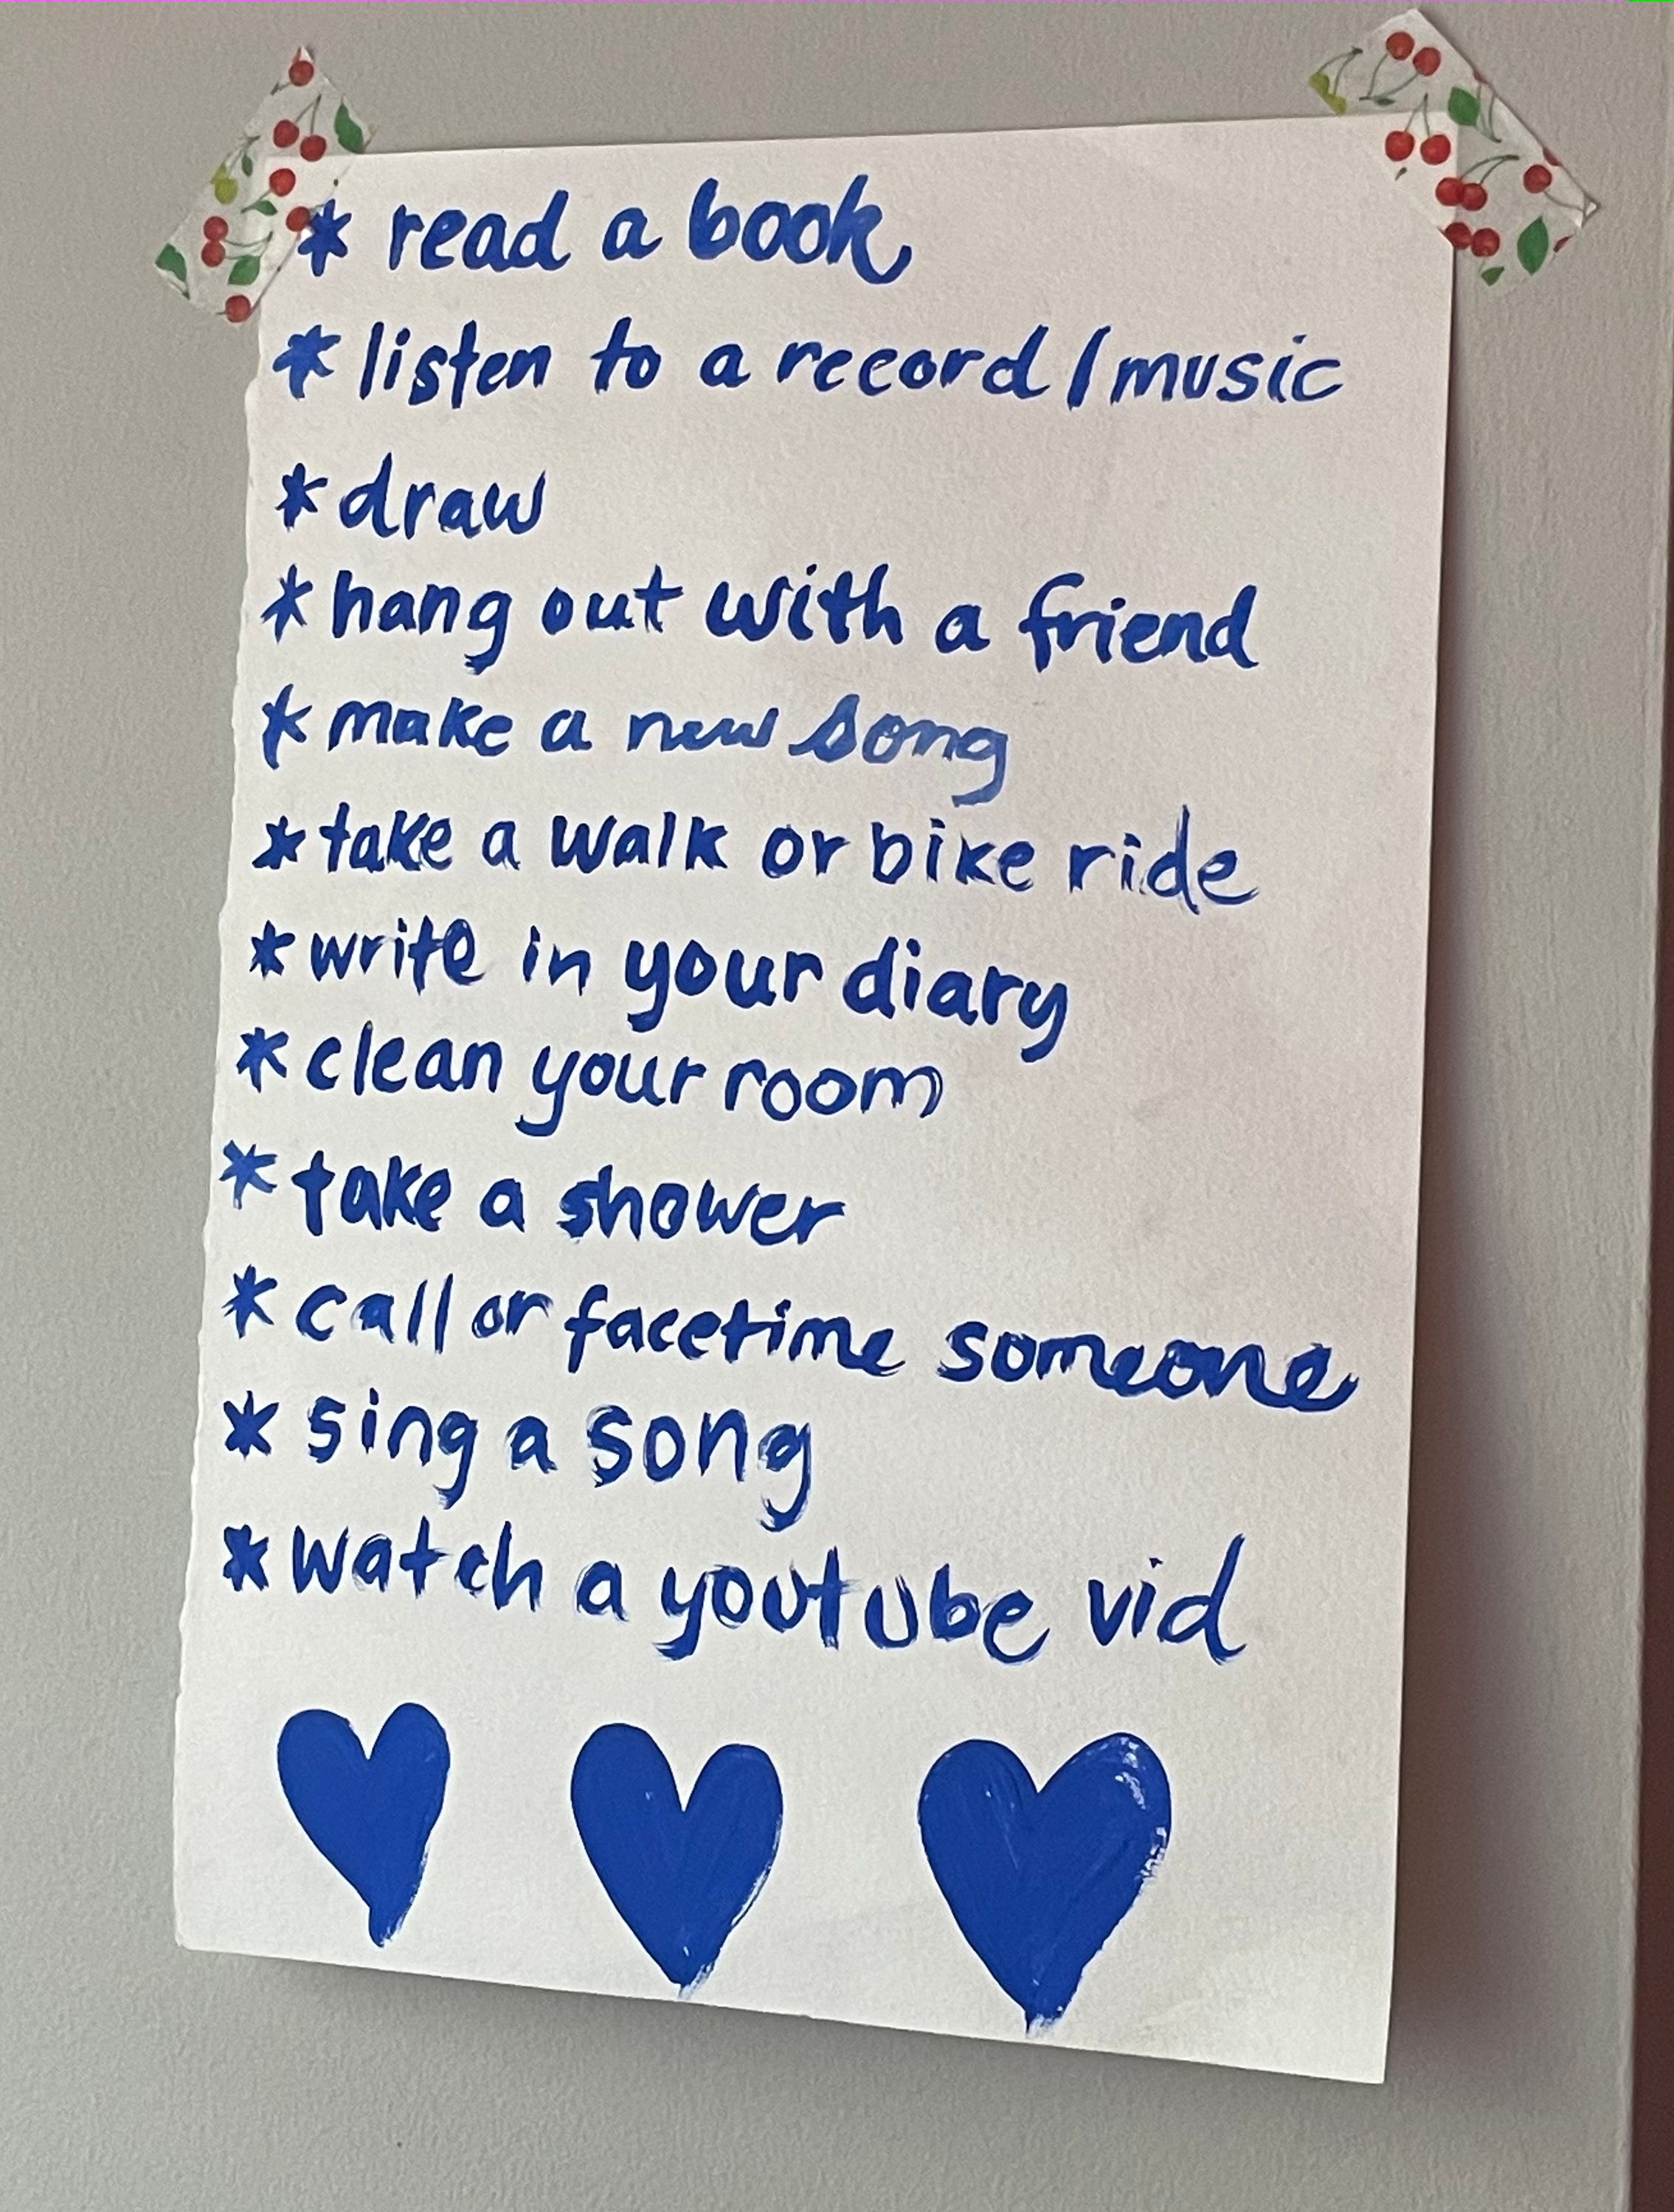 * read a book
* listen to a record/music
* draw
* hang out with a friend
* make a new song
* take a walk or bike ride
* write in your diary
* clean your room
* take a shower
* call or facetime someone
* sing a song
* watch a youtube vid